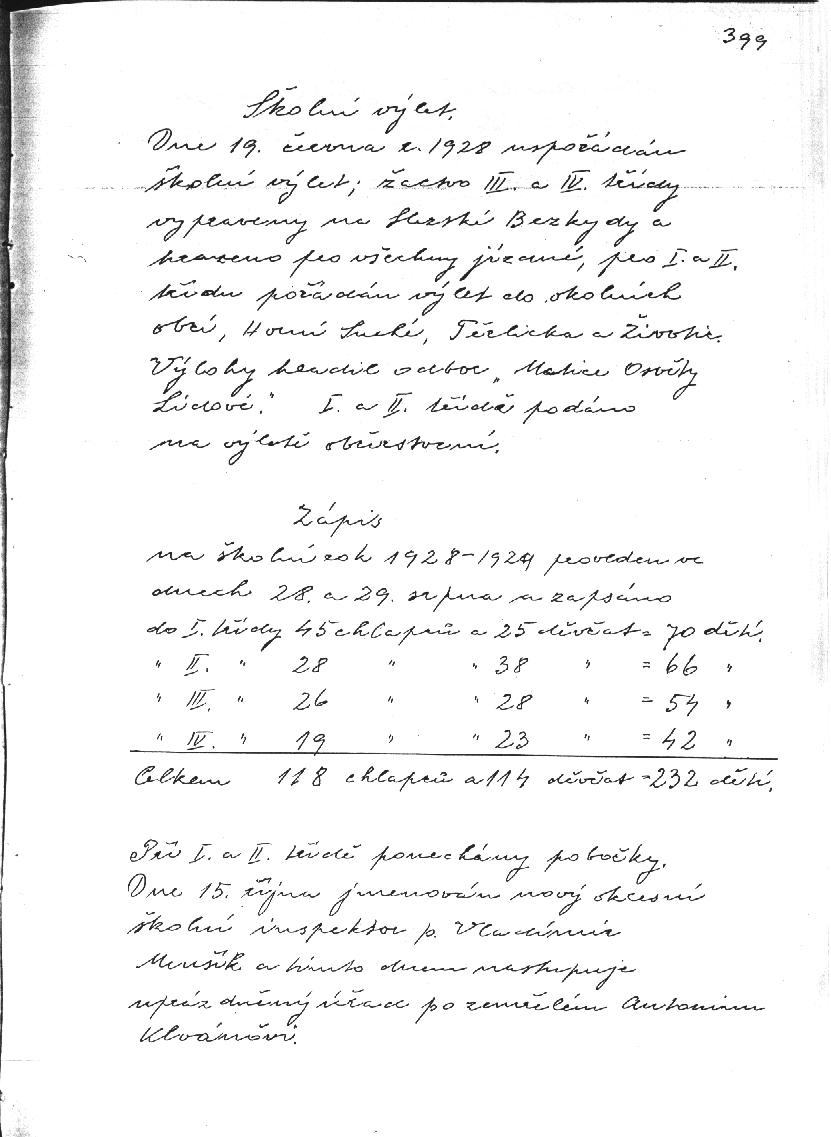 399
Školní výlet.
Dne 19. června r. 1928 uspořádán
školní výlet; žactvo III. a IV. třídy
vypraveny na Slezské Bezkydy a
hrazeno pro všechny jízdné, pro I. a II.
třídu pořádán výlet do okolních
obcí, Horní Suché, Těrlicka a Životic.
Výlohy hradil odbor „Matice Osvěty
Lidové." I. a II. třídě podáno
na výletě občerstvení.
Zápis
na školní rok 1928-1929 proveden ve
dnech 28. a 29. srpna a zapsáno
do I. třídy 45 chlapců a 25 děvčat = 70 dětí.
" II. " 28 " " 38 " = 66 "
" III. " 26 " " 28 " = 54 "
" IV. " 19 " " 23 " = 42 "
Celkem 118 chlapců a 114 děvčat = 232 dětí.
Při I. a II. třídě ponechány pobočky.
Dne 15. října jmenován nový okresní
školní inspektor p. Vladimír
Menšík a tímto dnem nastupuje
uprázdněný úřad po zemřelém Antonínu
Klvaňovi.